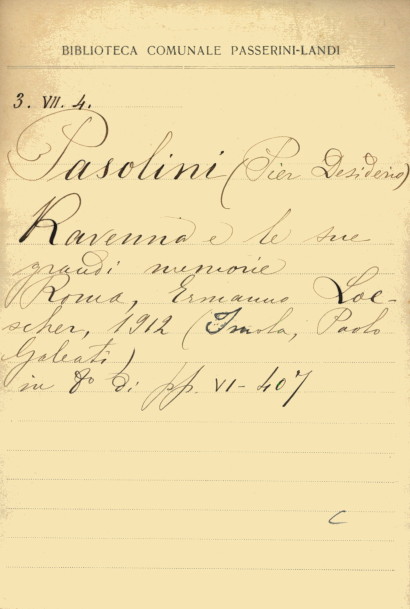 BIBLIOTECA COMUNALE PASSERINI-LANDI
3. VII. 4.
Pasolini (Pier Desiderio)
Ravenna e le sue
grandi memorie
Roma, Ermanno Loe-
scher, 1912 (Imola, Paolo
Galeati)
in 8º di pp. VI-407
C